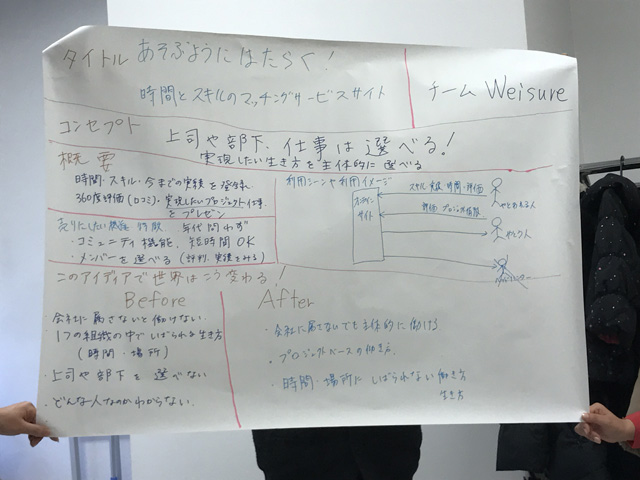 タイトル あそぶようにはたらく!
時間とスキルのマッチングサービスサイト
チーム Weisure
コンセプト
上司や部下、仕事は選べる!
実現したい生き方を主体的に選べる
概要
時間・スキル・今までの実績を登録
360度評価(口コミ)・実現したいプロジェクト仕事
をプレゼン
売りにしたい機能・特徴 年代問わず
・コミュニティ機能、短時間OK
・メンバーを選べる(評判、実績をみる)
利用シーンや利用イメージ
オンライン
サイト
スキル・実績・時間・評価
やとわれる人
評価・プロジェクト情報
やとう人
このアイディアで世界はこう変わる!
Before
・会社に属さないと働けない。
・1つの組織の中でしばられる生き方
(時間・場所)
・上司や部下を選べない
・どんな人なのかわからない。
After
・会社に属さないでも主体的に働ける
・プロジェクトベースの働き方.
・時間・場所にしばられない働き方
生き方